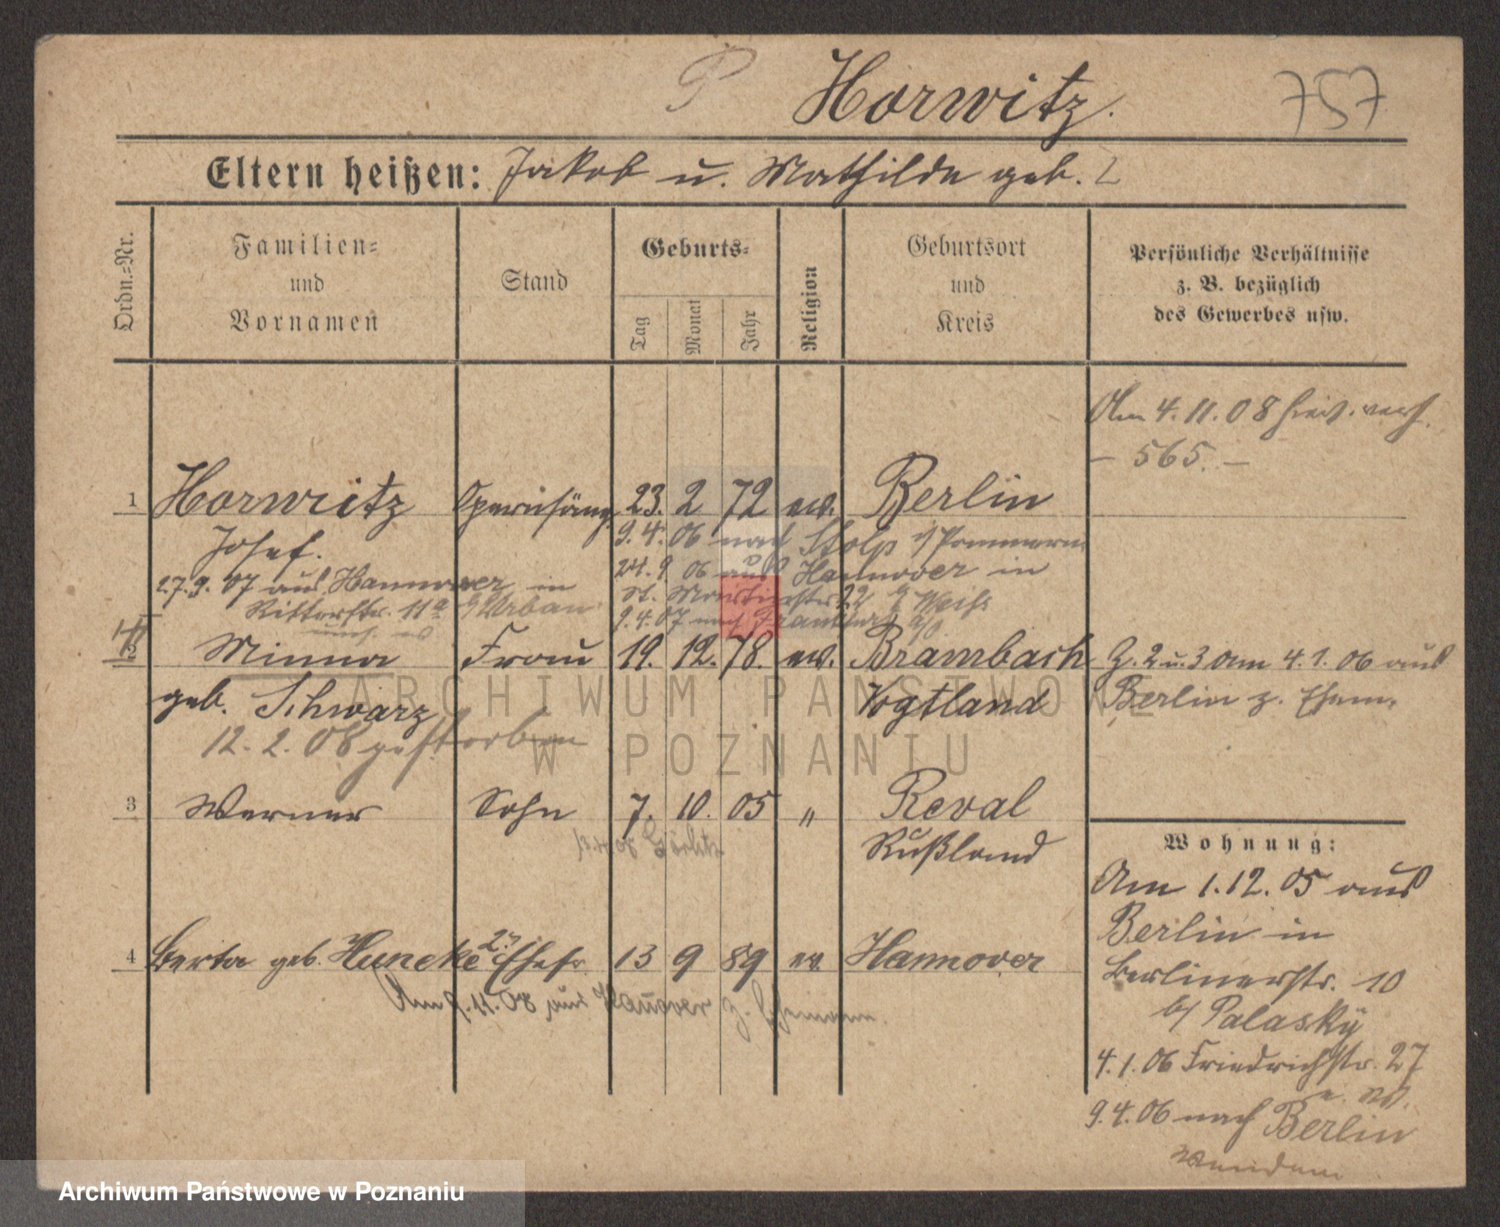 Horwitz.
757
Eltern heißen: Jakob u. Mathilde geb.
Ordn.=Nr.
Familien=
und
Vornamen
Stand
Geburts=
Tag
Monat
Jahr
Religion
Geburtsort
und
Kreis
Persönliche Verhältnisse
z. B. bezüglich
des Gewerbes usw.
Am 4.11.08
– 565. –
1 Horwitz Opernsäng. 23. 2 72 ev. Berlin
Josef.
9.4.06 nach Stolp i/Pommern
24.9 06 aus Hannover in
27.9.07 aus Hannover in
Ritterstr. 11a
9.4.07 nach Frankfurt a/O
Minna Frau 19. 12. 78. ev. Brambach
geb. Schwarz Vogtland
12.2.08 gestorben
Z. 2 u. 3 Am 4.1.06 aus
Berlin z. Ehem.
3 Werner Sohn 7. 10. 05 " Reval
Rußland
4 Berta geb. Huncke 2. Ehefr. 13 9 89 ev. Hannover
Am 9.11.08 aus Hanover z. Ehemann.
Wohnung:
Am 1.12.05 aus
Berlin in
Berlinerstr. 10
b/ Palasky
4.1.06 Friedrichstr. 27
9.4.06 nach Berlin
ARCHIWUM PAŃSTWOWE
W POZNANIU
Archiwum Państwowe w Poznaniu